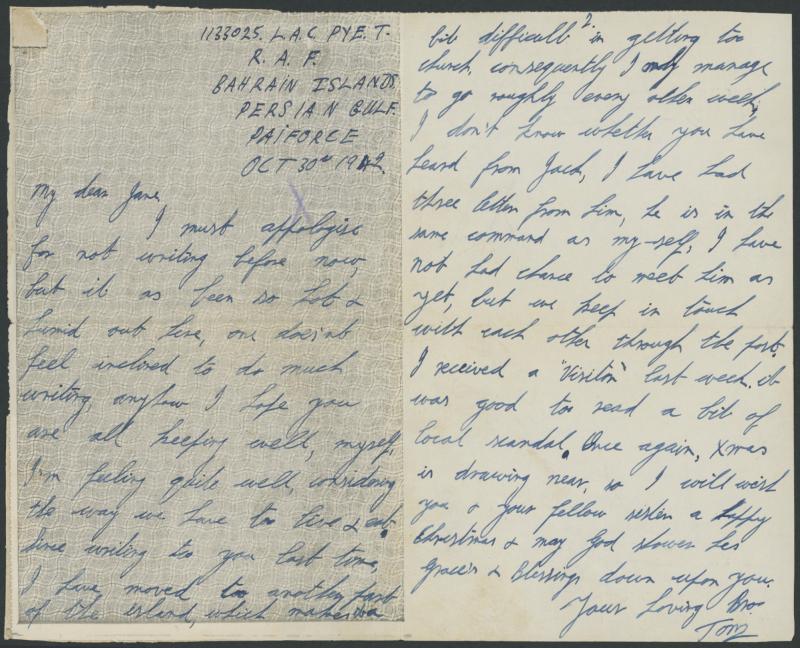 1133025. L.A.C PYE. T.
R. A. F.
BAHRAIN ISLANDS.
PERSIAN GULF.
PAIFORCE
OCT 30th 1942.
My dear Jane,
I must appologise
for not writing before now,
but it as been so hot &
humid out here, one doesint
feel inclined to do much
writing, anyhow I hope you
are all keeping well, myself,
I'm feeling quite well, considering
the way we have too live & eat.
Since writing too you last time,
I have moved too another part
of the island, which makes it a
2.
bit difficult in getting too
church, consequently I only manage
to go roughly every other week,
I don't know whether you have
heard from Jack, I have had
three letters from him, he is in the
same command as my-self, I have
not had chance to meet him as
yet, but we keep in touch
with each other through the post.
I received a "Visitor" last week. it
was good too read a bit of
local scandal. Once again, Xmas
is drawing near, so I will wish
you & your fellow sisters a happy
Christmas & may God shower his
Grace's & Blessings down upon you.
Your Loving Bro
Tom